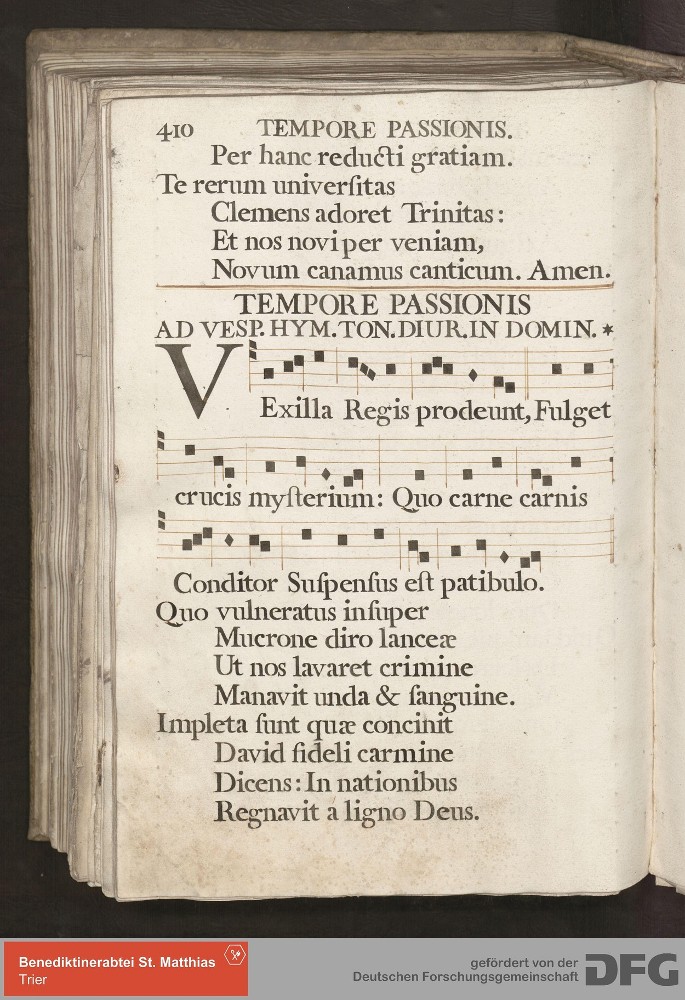 410 TEMPORE PASSIONIS.
Per hanc reducti gratiam.
Te rerum univerſitas
Clemens adoret Trinitas:
Et nos novi per veniam,
Novum canamus canticum. Amen.
TEMPORE PASSIONIS
AD VESP. HYM. TON. DIUR. IN DOMIN. *
VExilla Regis prodeunt, Fulget
crucis myſterium: Quo carne carnis
Conditor Suſpenſus eſt patibulo.
Quo vulneratus inſuper
Mucrone diro lanceæ
Ut nos lavaret crimine
Manavit unda & ſanguine.
Impleta ſunt quæ concinit
David fideli carmine
Dicens: In nationibus
Regnavit a ligno Deus.
Benediktinerabtei St. Matthias
Trier
gefördert von der
Deutschen Forschungsgemeinschaft DFG